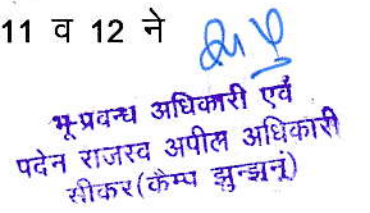 11 व 12 ने
भू-प्रवन्ध अधिकारी एवं
पदेन राजस्व अपील अधिकारी
सीकर(कैम्प झुन्झनूं)